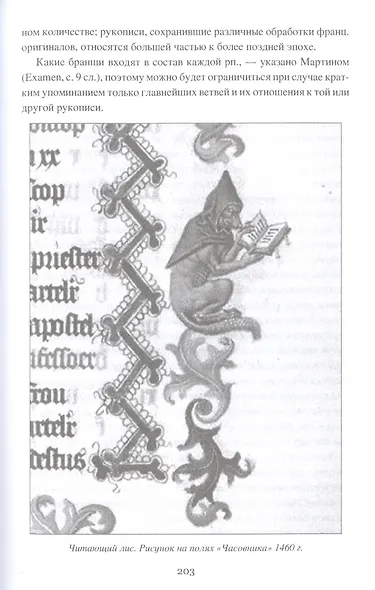 ном количестве; рукописи, сохранившие различные обработки франц.
оригиналов, относятся большей частью к более поздней эпохе.
Какие бранши входят в состав каждой рп., — указано Мартином
(Examen, с. 9 сл.), поэтому можно будет ограничиться при случае крат-
ким упоминанием только главнейших ветвей и их отношения к той или
другой рукописи.
xx
priester
apostel
Читающий лис. Рисунок на полях «Часовника» 1460 г.
203